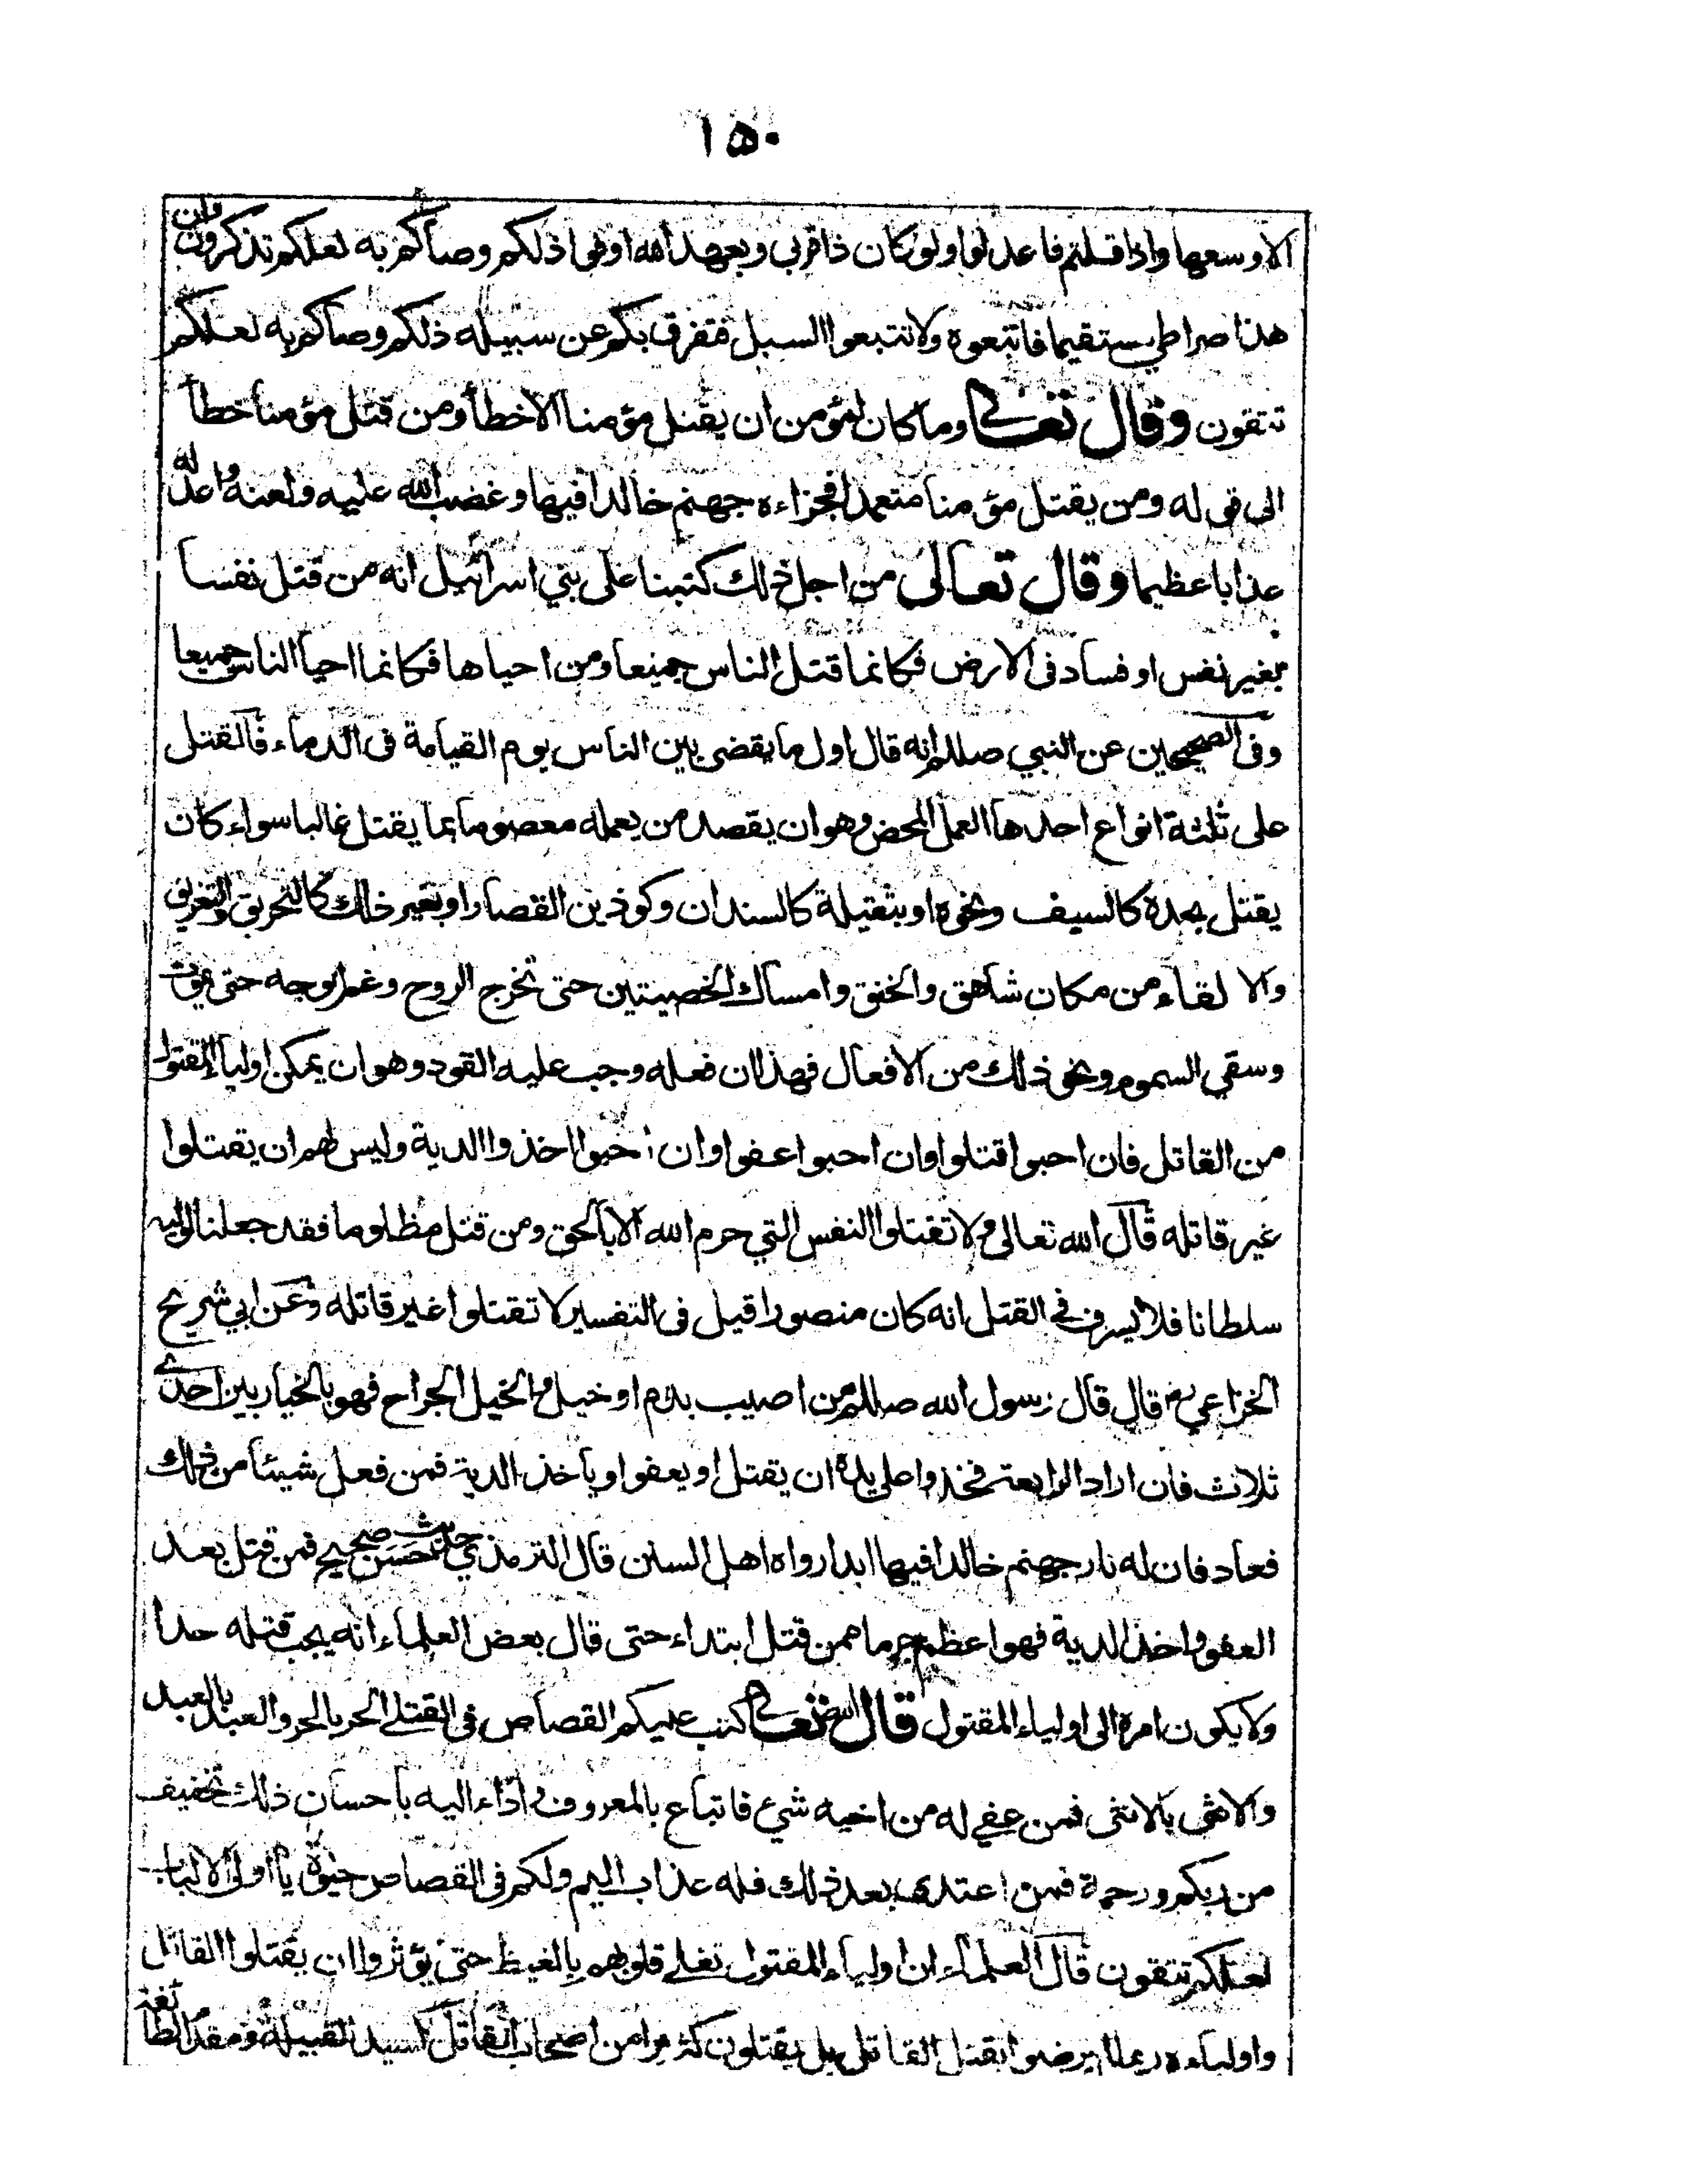 ١٥٠
الا وسعها واذا قلتم فاعدلوا ولو كان ذا قربى وبعهد الله اوفوا ذلكم وصاكم به لعلكم تذكرون وان
هذا صراطي مستقيما فاتبعوه ولا تتبعوا السبل فتفرق بكم عن سبيله ذلكم وصاكم به لعلكم
تتقون وقال تعالى وما كان لمؤمن ان يقتل مؤمنا الا خطأ ومن قتل مؤمنا خطأ
الى قوله ومن يقتل مؤمنا متعمدا فجزاءه جهنم خالدا فيها وغضب الله عليه ولعنه واعد له
عذابا عظيما وقال تعالى من اجل ذلك كتبنا على بني اسرائيل انه من قتل نفسا
بغير نفس او فساد فى الارض فكانما قتل الناس جميعا ومن احياها فكانما احيا الناس جميعا
وفى الصحيحين عن النبي صللم انه قال اول ما يقضى بين الناس يوم القيامة فى الدماء فالقتل
على ثلثة انواع احدها العمد المحض وهو ان يقصد من يعمله معصوما بما يقتل غالبا سواء كان
يقتل بحده كالسيف ونحوه او بثقيلة كالسندان وكوذين القصار او بغير ذلك كالتحريق والتغريق
والا لقاء من مكان شاهق والخنق وامساك الخصيتين حتى تخرج الروح وغم الوجه حتى يموت
وسقي السموم ونحو ذلك من الافعال فهذا ان فعله وجب عليه القود وهو ان يمكن اولياء المقتول
من القاتل فان احبوا قتلوا وان احبوا عفوا وان احبوا اخذوا الدية وليس لهم ان يقتلوا
غير قاتله قال الله تعالى ولا تقتلوا النفس التي حرم الله الا بالحق ومن قتل مظلوما فقد جعلنا لوليه
سلطانا فلا يسرف في القتل انه كان منصورا قيل فى التفسير لا تقتلوا غير قاتله وعن ابي شريح
الخزاعي رض قال قال رسول الله صللم من اصيب بدم او خبل والخبل الجراح فهو بالخيار بين احدى
ثلاث فان اراد الرابعة فخذوا على يده ان يقتل او يعفو او يأخذ الدية فمن فعل شيئا من ذلك
فعاد فان له نار جهنم خالدا فيها ابدا رواه اهل السنن قال الترمذي حديث حسن صحيح فمن قتل بعد
العفو واخذ الدية فهو اعظم جرما ممن قتل ابتداء حتى قال بعض العلماء انه يجب قتله حدا
ولا يكون امره الى اولياء المقتول قال الله تعالى كتب عليكم القصاص فى القتلى الحر بالحر والعبد بالعبد
والانثى بالانثى فمن عفي له من اخيه شيء فاتباع بالمعروف واداء اليه باحسان ذلك تخفيف
من ربكم ورحمة فمن اعتدى بعد ذلك فله عذاب اليم ولكم فى القصاص حيوة يا اولى الالباب
لعلكم تتقون قال العلماء ان اولياء المقتول تغلي قلوبهم بالغيظ حتى يؤثروا ان يقتلوا القاتل
واولياءه ربما لم يرضوا بقتل القاتل بل يقتلون كثيرا من اصحاب القاتل كسيد القبيلة ومقدم الطائفة